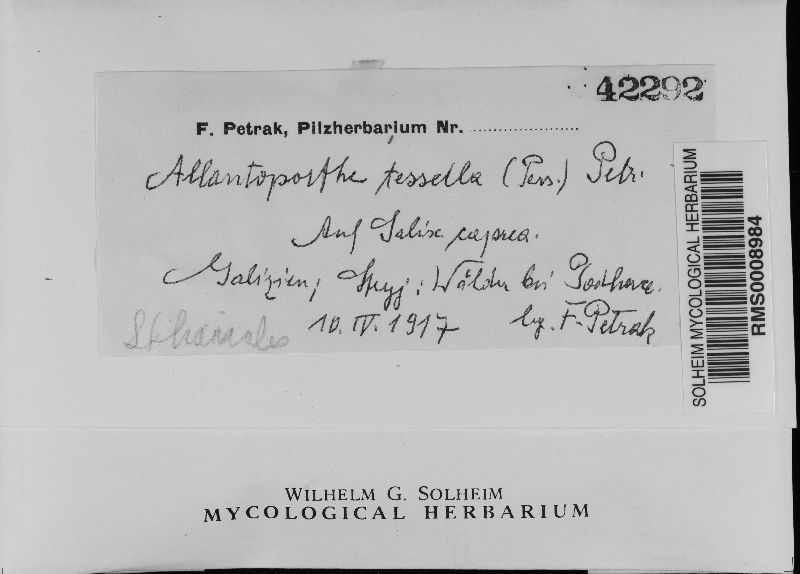 42292
F. Petrak, Pilzherbarium Nr.
Allantoporthe tessella (Pers.) Petr.
Auf Salix caprea.
Galizien; Stryj: Wälder bei Podhorce.
10. IV. 1917 lg. F. Petrak
SOLHEIM MYCOLOGICAL HERBARIUM
RMS0008984
WILHELM G. SOLHEIM
MYCOLOGICAL HERBARIUM